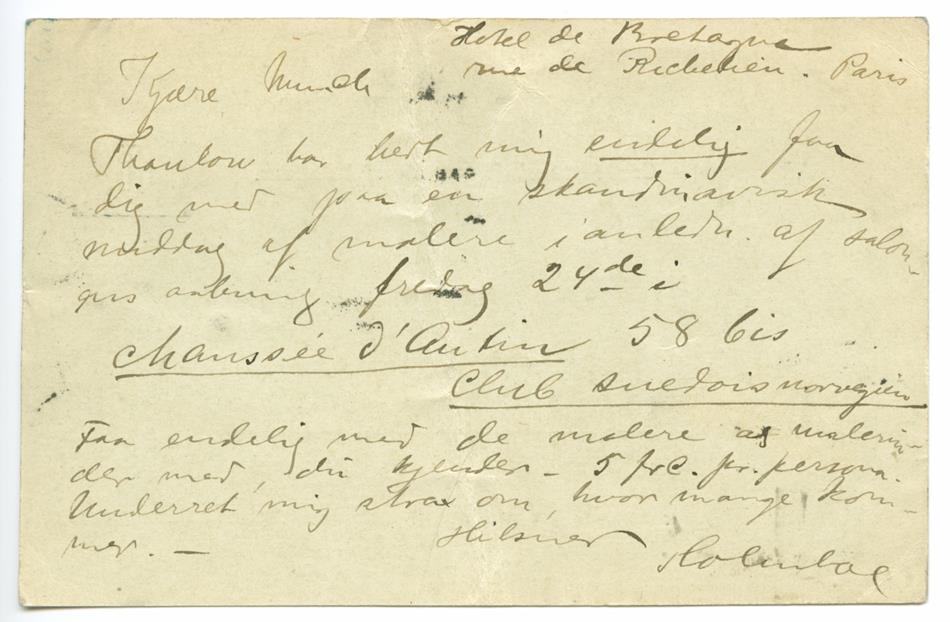 Hotel de Bretagne
rue de Richelieu. Paris
Kjære Munch
Thaulow har bedt mig endelig faa
dig med paa en skandinavisk
middag af malere i anledn. af salon-
gns aabning fredag 24de i
chaussée d'Antin 58 bis
Club suedois norvegien
Faa endelig med de malere og malerin-
der med, du kjender – 5 frc. pr. persona.
Underret mig strax om, hvor mange kom-
mer. –
Hilsner
Holmboe